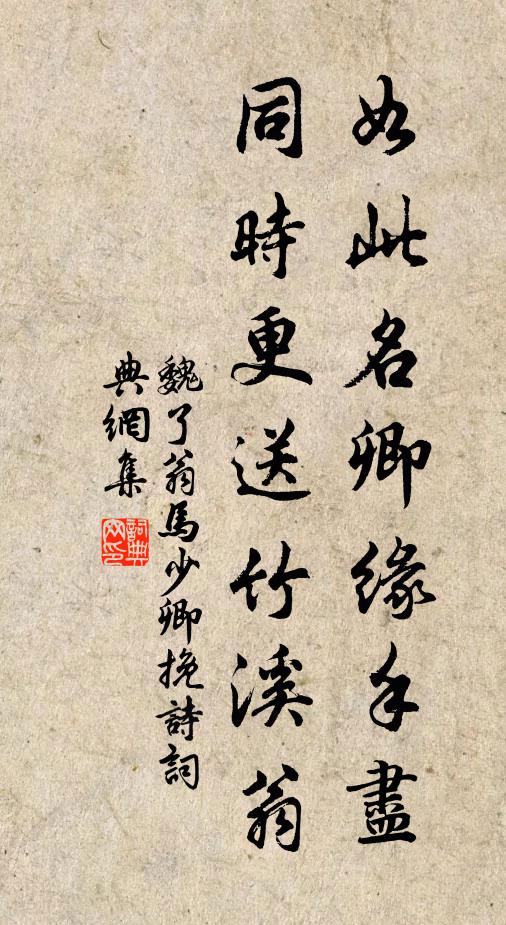 如此名卿緣手盡
同時更送竹溪翁
魏了翁馬少卿挽詩詞
典網集
詞典
网印